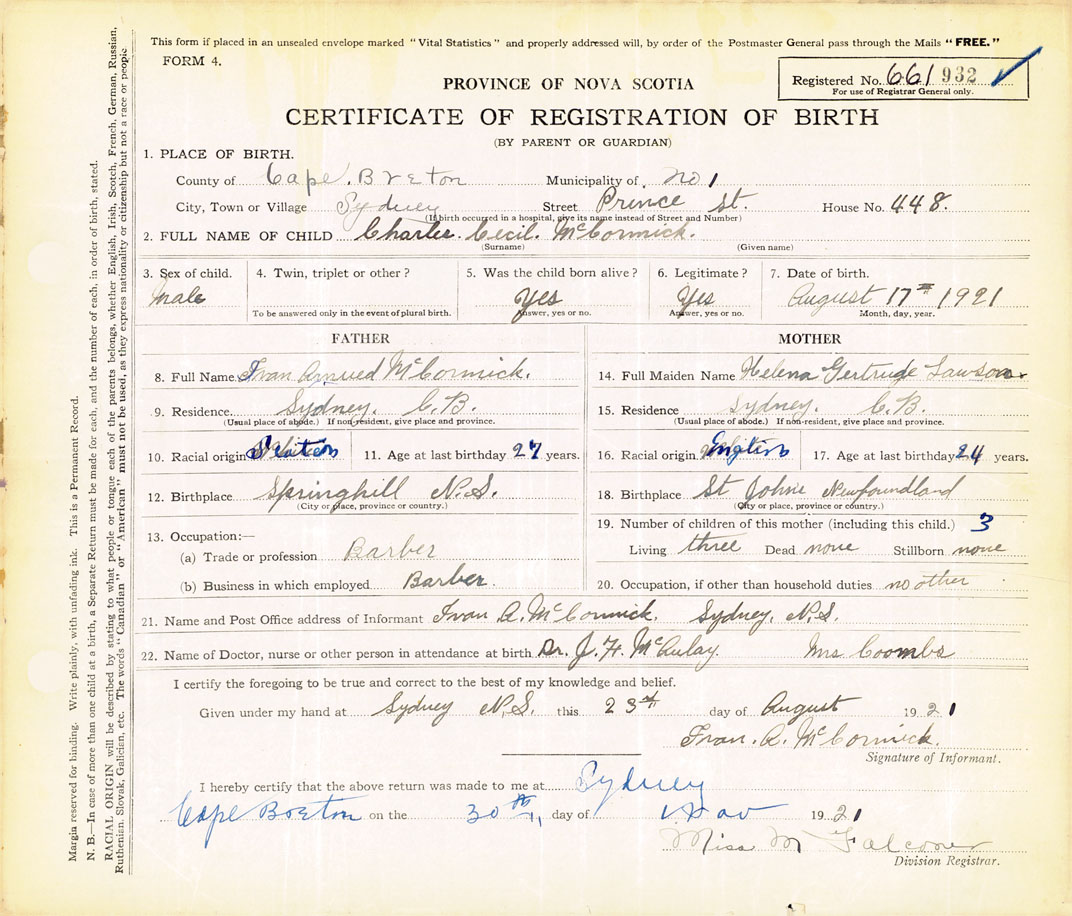 This form if placed in an unsealed envelope marked "Vital Statistics" and properly addressed will, by order of the Postmaster General pass through the Mails "FREE."
FORM 4.
Registered No. 661 932
For use of Registrar General only.
PROVINCE OF NOVA SCOTIA
CERTIFICATE OF REGISTRATION OF BIRTH
(BY PARENT OR GUARDIAN)
1. PLACE OF BIRTH.
County of Cape Breton Municipality of No 1
City, Town or Village Sydney Street Prince St. House No. 448.
(If birth occurred in a hospital, give its name instead of Street and Number)
2. FULL NAME OF CHILD Charles Cecil McCormick.
(Surname) (Given name)
3. Sex of child. 4. Twin, triplet or other? 5. Was the child born alive? 6. Legitimate? 7. Date of birth.
Male Yes Yes August 17th 1921
To be answered only in the event of plural birth. Answer, yes or no. Answer, yes or no. Month, day, year.
FATHER
8. Full Name Ivan McCormick.
9. Residence Sydney. C.B.
(Usual place of abode.) If non-resident, give place and province.
10. Racial origin 11. Age at last birthday 27 years.
12. Birthplace Springhill N.S.
(City or place, province or country.)
13. Occupation:—
(a) Trade or profession Barber
(b) Business in which employed Barber.
MOTHER
14. Full Maiden Name Helena Gertrude Lawson.
15. Residence Sydney. C.B.
(Usual place of abode.) If non-resident, give place and province.
16. Racial origin English 17. Age at last birthday 24 years.
18. Birthplace St Johns Newfoundland
(City or place, province or country.)
19. Number of children of this mother (including this child.) 3
Living three Dead none Stillborn none
20. Occupation, if other than household duties no other
21. Name and Post Office address of Informant Ivan A. McCormick. Sydney, N.S.
22. Name of Doctor, nurse or other person in attendance at birth Dr. J. H. McAulay. Mrs Coombs
I certify the foregoing to be true and correct to the best of my knowledge and belief.
Given under my hand at Sydney N.S. this 23rd day of August 1921
Ivan. A. McCormick.
Signature of Informant.
I hereby certify that the above return was made to me at Sydney
Cape Breton on the 30th, day of Nov 1921
Miss M Falconer
Division Registrar.
Margin reserved for binding. Write plainly, with unfading ink. This is a Permanent Record.
N. B.—In case of more than one child at a birth, a Separate Return must be made for each, and the number of each, in order of birth, stated.
RACIAL ORIGIN will be described by stating to what people or tongue each of the parents belongs, whether English, Irish, Scotch, French, German, Russian,
Ruthenian, Slovak, Galician, etc. The words "Canadian" or "American" must not be used, as they express nationality or citizenship but not a race or people